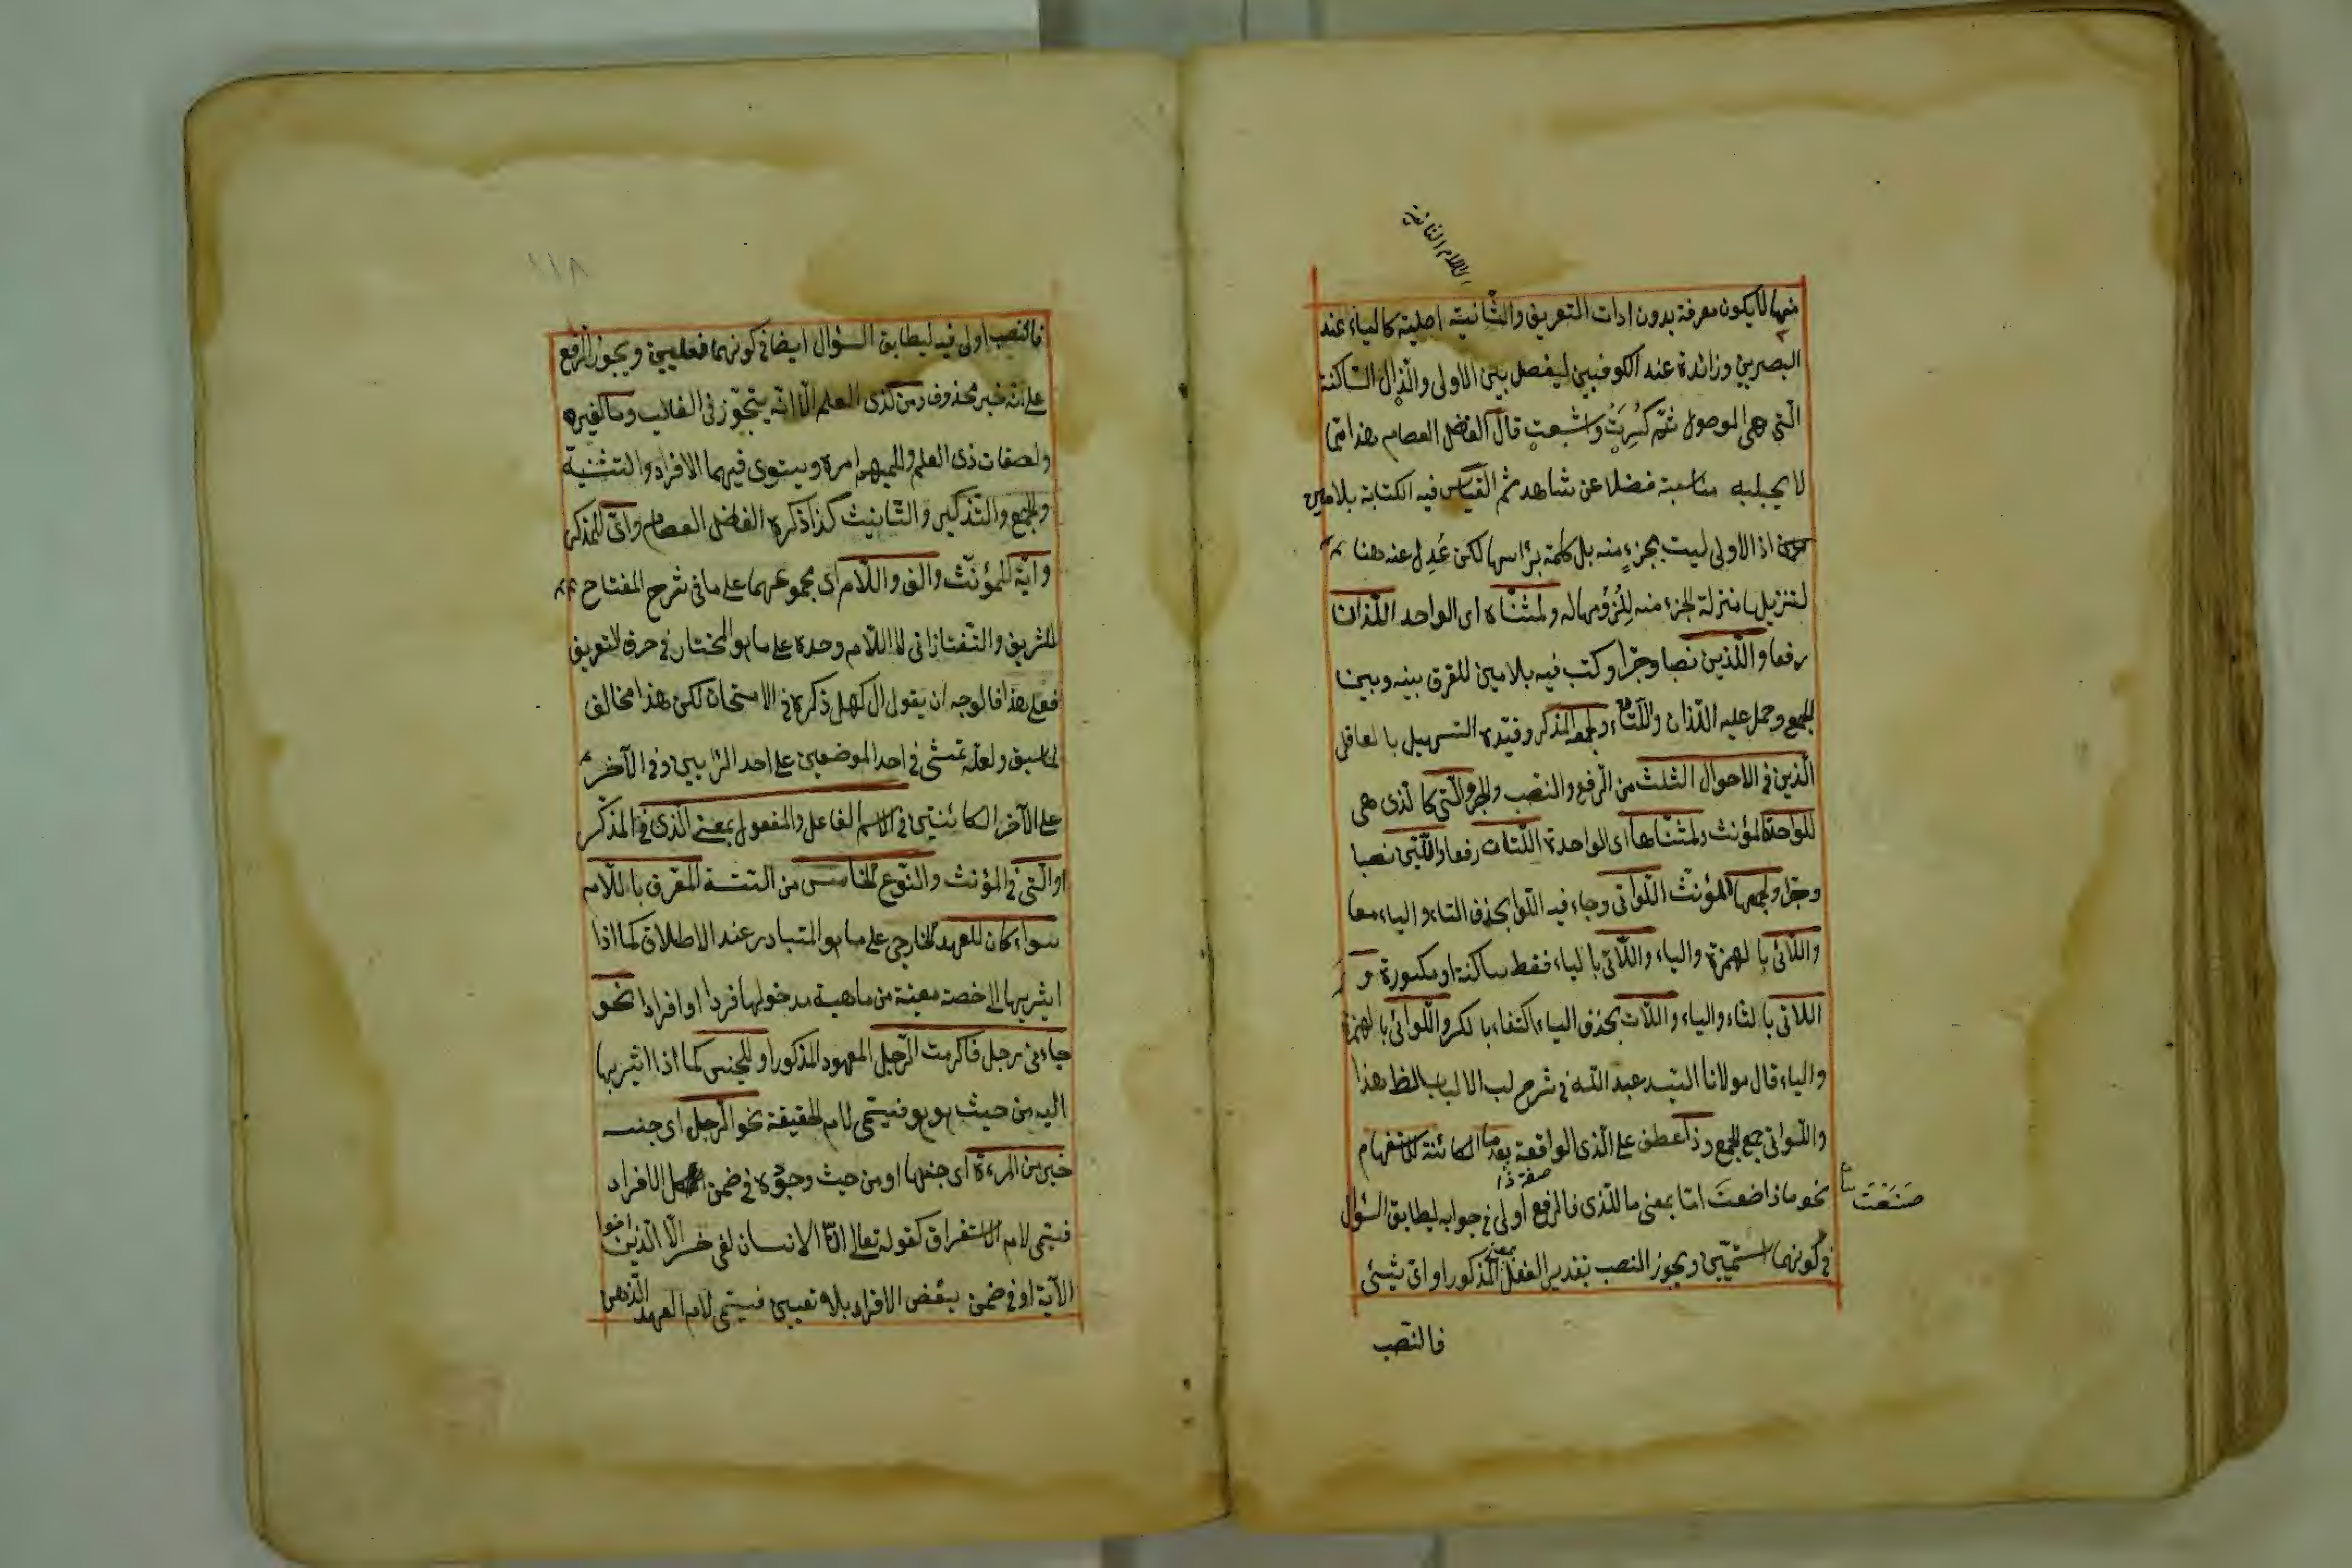 اللام الثانية
منها لا يكون معرفة بدون ادات التعريف والثانية اصلية كالياء عند
البصريين وزائدة عند الكوفيين ليفصل بين الاولى والذال الساكنة
التى هى الموصول ثم كُسِرَتْ واشبعت قال الفاضل العصام هذا مما
لا يجلبه مناسبة فضلا عن شاهد ثم القياس فيه الكتابة بلامين
اذ الاولى ليست بجزءٍ منه بل كلمة برأسها لكن عُدِل عنه هنا
لتنزيلها منزلة الجزء منه لِلُزُومها له ولمثناه اى الواحد اللذان
رفعا واللذين نصبا وجرا وكتب فيه بلامين للفرق بينه وبين
الجمع وحمل عليه اللذان واللتان ولجمعه المذكر وقيّده التسهيل بالعاقل
الذين فى الاحوال الثلث من الرفع والنصب والجر والتى كالذى هى
للواحدة المؤنث ولمثناها اى الواحدة اللتان رفعا واللتين نصبا
وجرا ولجمعها المؤنث اللواتى وجاء فيه اللوا بحذف التاء والياء معا
واللائى بالهمزة والياء واللاى بالياء فقط ساكنة او مكسورة و
اللاتى بالتاء والياء واللات بحذف الياء اكتفاء بالكسر واللوائى بالهمزة
والياء قال مولانا السيد عبد الله فى شرح لب الالباب بالظ هذا
واللواتى جمع الجمع وذا عطف على الذى الواقعة بعد ما الكائنة للاستفهام
صفة ذا
نحو ماذا ضعت اما بمعنى ما الذى فالرفع اولى فى جوابه ليطابق السؤال
صَنَعْتَ
فى كونهما اسميّين ويجوز النصب بتقدير الفعل المذكور او اىّ شيئ
فالنصب
١١٨
فالنصب اولى فيه ليطابق السؤال ايضا فى كونهما فعليين ويجوز الرفع
على انه خبر محذوف ومن كذى العلم الا انه يتجوّز فى الغالب وما لغيره
ولصفات ذى العلم وللمبهم امره ويستوى فيهما الافراد والتثنية
والجمع والتذكير والتأنيث كذا ذكره الفاضل العصام واىّ للمذكر
وايّة للمؤنث والف واللام اى مجموعهما على ما فى شرح المفتاح
للشريف والتفتازانى لا اللام وحده على ما هو المختار فى حرف التعريف
فعلى هذا فالوجه ان يقول ال كهل ذكره فى الامتحان لكن هذا مخالف
لما سبق ولعله تمشى فى احد الموضعين على احد الرأيين وفى الآخر
على الآخر الكائنتين فى الاسم الفاعل والمفعول بمعنى الذى فى المذكر
او التى فى المؤنث والنوع الخامس من الستة المعرف باللام
سواء كان للعهد الخارجى على ما هو المتبادر عند الاطلاق كما اذا
اشير بها الى خصة معينة من ماهية مدخولها فردا او افرادا نحو
جاءنى رجل فاكرمت الرجل المعهود المذكور او للجنس كما اذا اشير بها
اليه من حيث هو هو فيسمى لام الحقيقة نحو الرجل اى جنسه
خير من المرءة اى جنسها او من حيث وجوده فى ضمن كل الافراد
فيسمى لام الاستغراق كقوله تعالى انّ الانسان لفى خسر الّا الذين امنوا
الآية او فى ضمن بعض الافراد بلا تعيين فيسمى لام العهد الذهنى